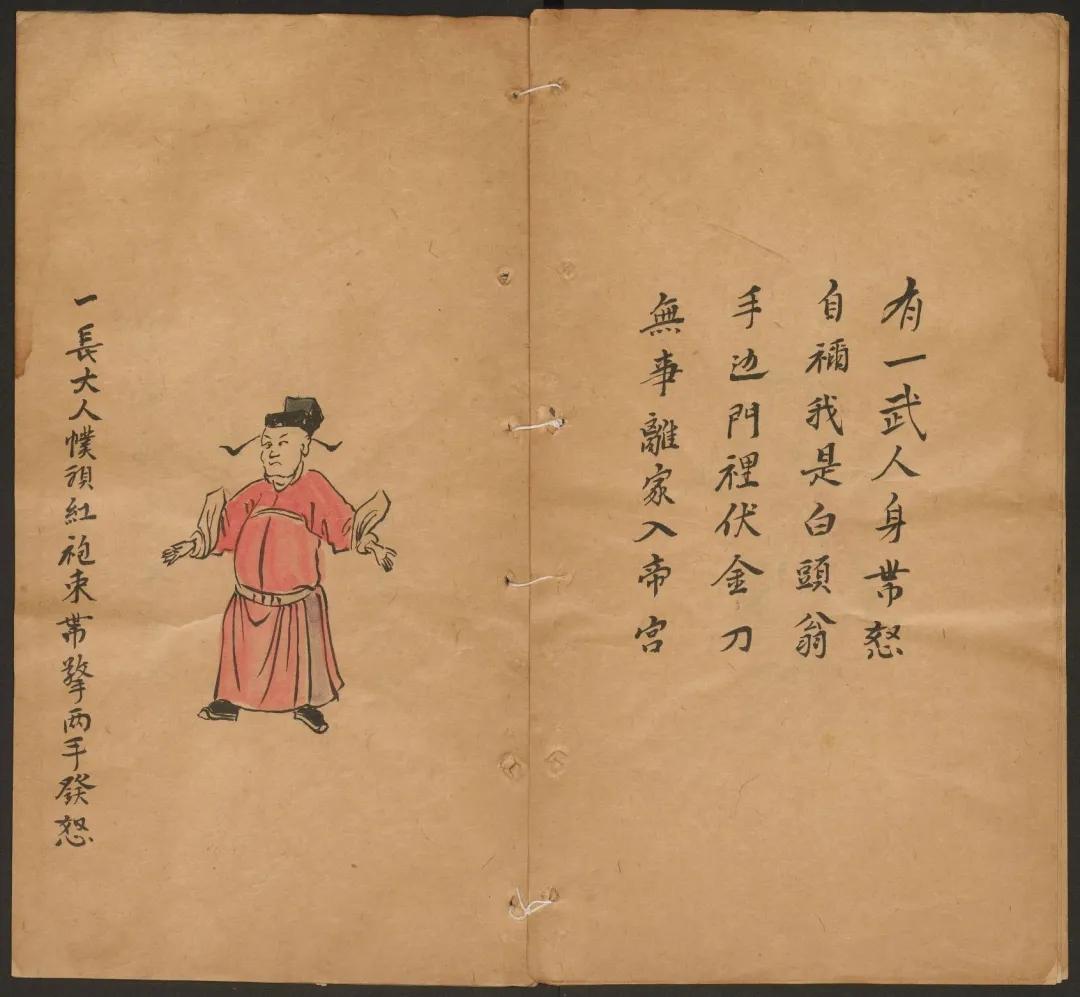 有一武人身帯怒
自稱我是白頭翁
手边門裡伏金刀
無事離家入帝宮
一長大人幞頭紅袍束帯擎兩手發怒